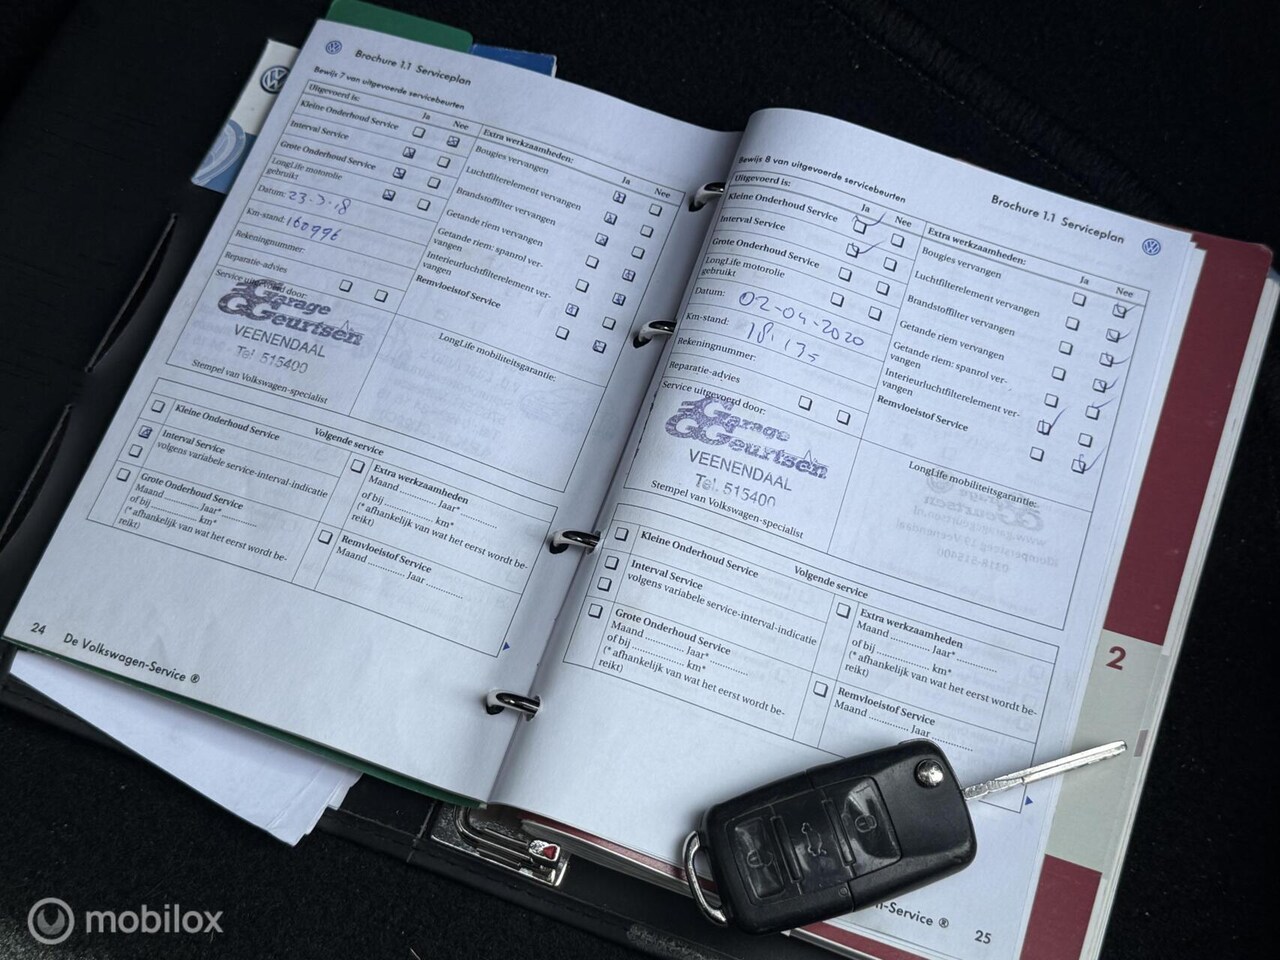 Brochure 1.1 Serviceplan
Bewijs 7 van uitgevoerde servicebeurten
Uitgevoerd is:
Ja
Nee
Kleine Onderhoud Service
Interval Service
Grote Onderhoud Service
LongLife motorolie
gebruikt
Datum:
Km-stand: 160996
Rekeningnummer:
Reparatie-advies
Service uitgevoerd door:
Garage
Geurtsen
VEENENDAAL
Tel. 515400
Stempel van Volkswagen-specialist
Extra werkzaamheden:
Ja
Nee
Bougies vervangen
Luchtfilterelement vervangen
Brandstoffilter vervangen
Getande riem vervangen
Getande riem: spanrol ver-
vangen
Interieurluchtfilterelement ver-
vangen
Remvloeistof Service
LongLife mobiliteitsgarantie:
Volgende service
Kleine Onderhoud Service
Interval Service
volgens variabele service-interval-indicatie
Grote Onderhoud Service
Maand ............ Jaar* ............
of bij ............ km*
(* afhankelijk van wat het eerst wordt be-
reikt)
Extra werkzaamheden
Maand ............ Jaar* ............
of bij ............ km*
(* afhankelijk van wat het eerst wordt be-
reikt)
Remvloeistof Service
Maand ............ Jaar ............
24
De Volkswagen-Service ®
Brochure 1.1 Serviceplan
Bewijs 8 van uitgevoerde servicebeurten
Uitgevoerd is:
Ja
Nee
Kleine Onderhoud Service
Interval Service
Grote Onderhoud Service
LongLife motorolie
gebruikt
Datum: 02-04-2020
Km-stand:
Rekeningnummer:
Reparatie-advies
Service uitgevoerd door:
Garage
Geurtsen
VEENENDAAL
Tel. 515400
Stempel van Volkswagen-specialist
Extra werkzaamheden:
Ja
Nee
Bougies vervangen
Luchtfilterelement vervangen
Brandstoffilter vervangen
Getande riem vervangen
Getande riem: spanrol ver-
vangen
Interieurluchtfilterelement ver-
vangen
Remvloeistof Service
LongLife mobiliteitsgarantie:
Volgende service
Kleine Onderhoud Service
Interval Service
volgens variabele service-interval-indicatie
Grote Onderhoud Service
Maand ............ Jaar* ............
of bij ............ km*
(* afhankelijk van wat het eerst wordt be-
reikt)
Extra werkzaamheden
Maand ............ Jaar* ............
of bij ............ km*
(* afhankelijk van wat het eerst wordt be-
reikt)
Remvloeistof Service
Maand ............ Jaar ............
2
n-Service ®
25
mobilox